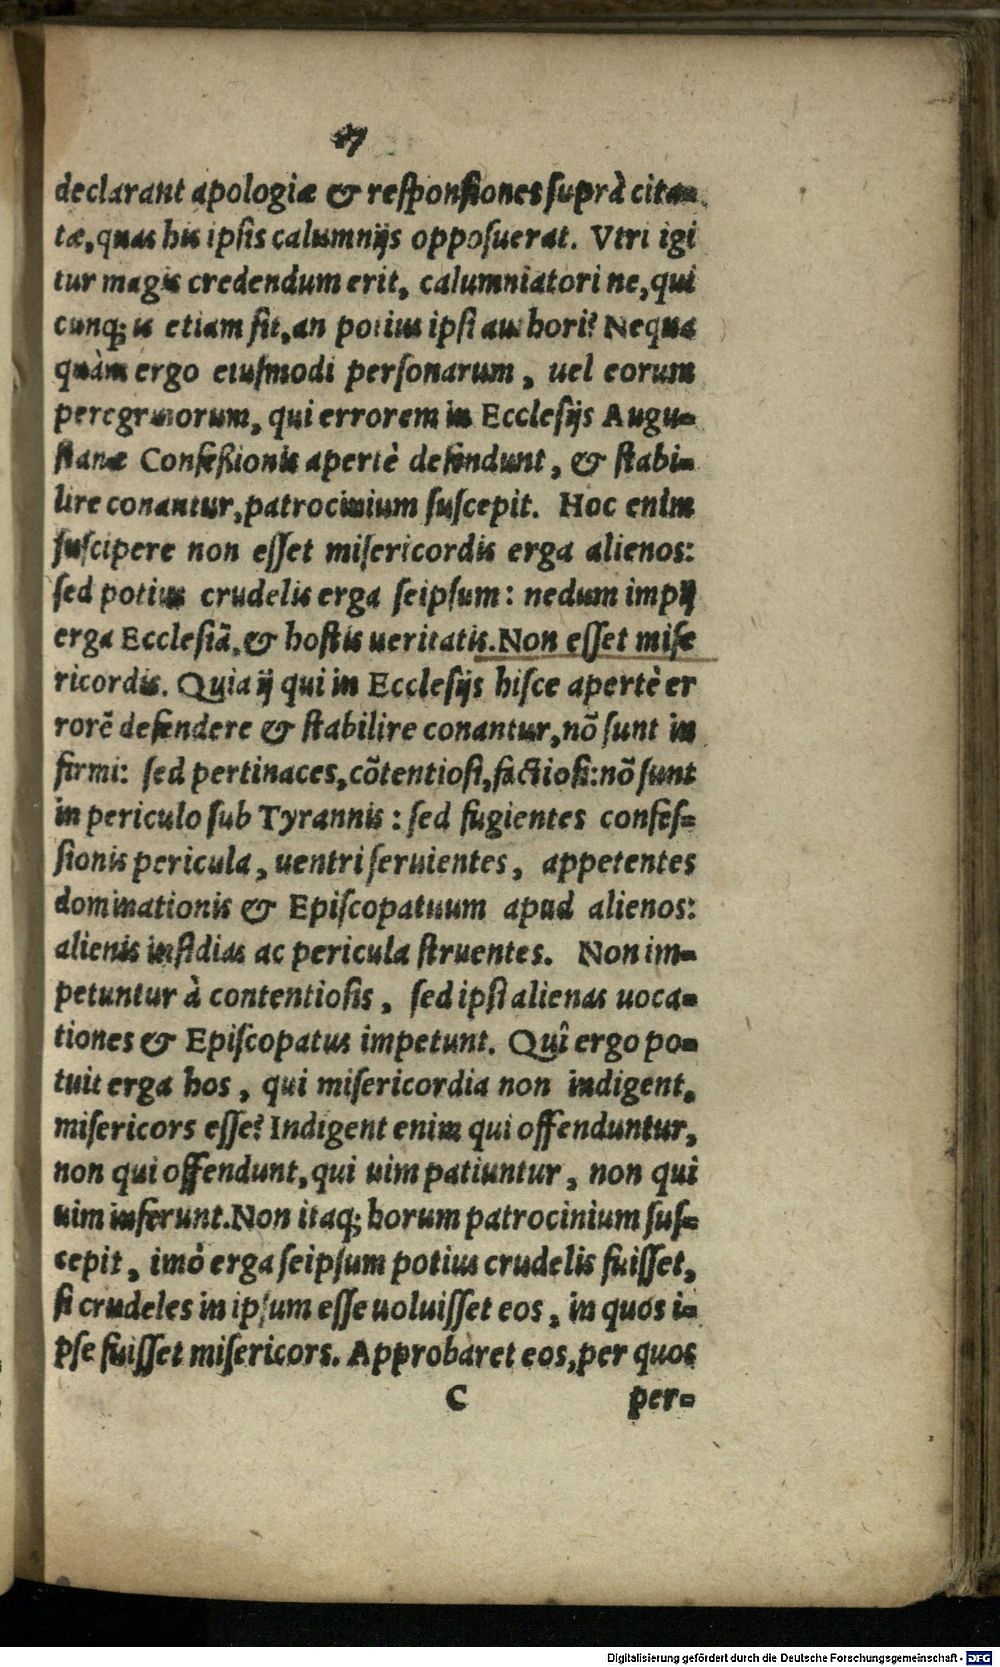 17
declarant apologiæ & reſponſiones ſuprà cita-
tæ, quas his ipſis calumnijs oppoſuerat. Vtri igi
tur magis credendum erit, calumniatori ne, qui
cunq; is etiam ſit, an potius ipſi authori? Nequa
quàm ergo eiuſmodi perſonarum, uel eorum
peregrinorum, qui errorem in Eccleſijs Augu-
ſtanæ Confeßionis apertè defendunt, & ſtabi-
lire conantur, patrocinium ſuſcepit. Hoc enim
ſuſcipere non eſſet miſericordis erga alienos:
ſed potius crudelis erga ſeipſum: nedum impij
erga Eccleſiã, & hoſtis ueritatis. Non eſſet miſe
ricordis. Quia ij qui in Eccleſijs hiſce apertè er
rorẽ defendere & ſtabilire conantur, nõ ſunt in
firmi: ſed pertinaces, cõtentioſi, factioſi: nõ ſunt
in periculo ſub Tyrannis: ſed fugientes confeſ-
ſionis pericula, uentri ſeruientes, appetentes
dominationis & Epiſcopatuum apud alienos:
alienis inſidias ac pericula ſtruentes. Non im-
petuntur à contentioſis, ſed ipſi alienas uoca-
tiones & Epiſcopatus impetunt. Quî ergo po-
tuit erga hos, qui miſericordia non indigent,
miſericors eſſe? Indigent enim qui offenduntur,
non qui offendunt, qui uim patiuntur, non qui
uim inferunt. Non itaq; horum patrocinium ſuſ-
cepit, imò erga ſeipſum potius crudelis fuiſſet,
ſi crudeles in ipſum eſſe uoluiſſet eos, in quos i-
pſe fuiſſet miſericors. Approbaret eos, per quos
C per-
Digitalisierung gefördert durch die Deutsche Forschungsgemeinschaft - DFG